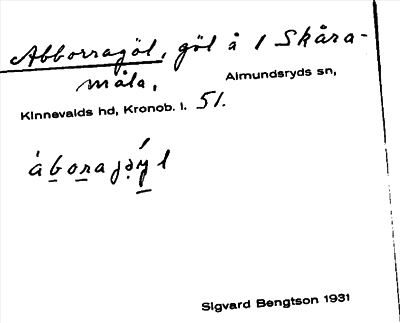 Abborragöl, göl å 1 Skåra-
måla.
Almundsryds sn,
Kinnevalds hd, Kronob. l. 51.
åborajəýl
Sigvard Bengtson 1931